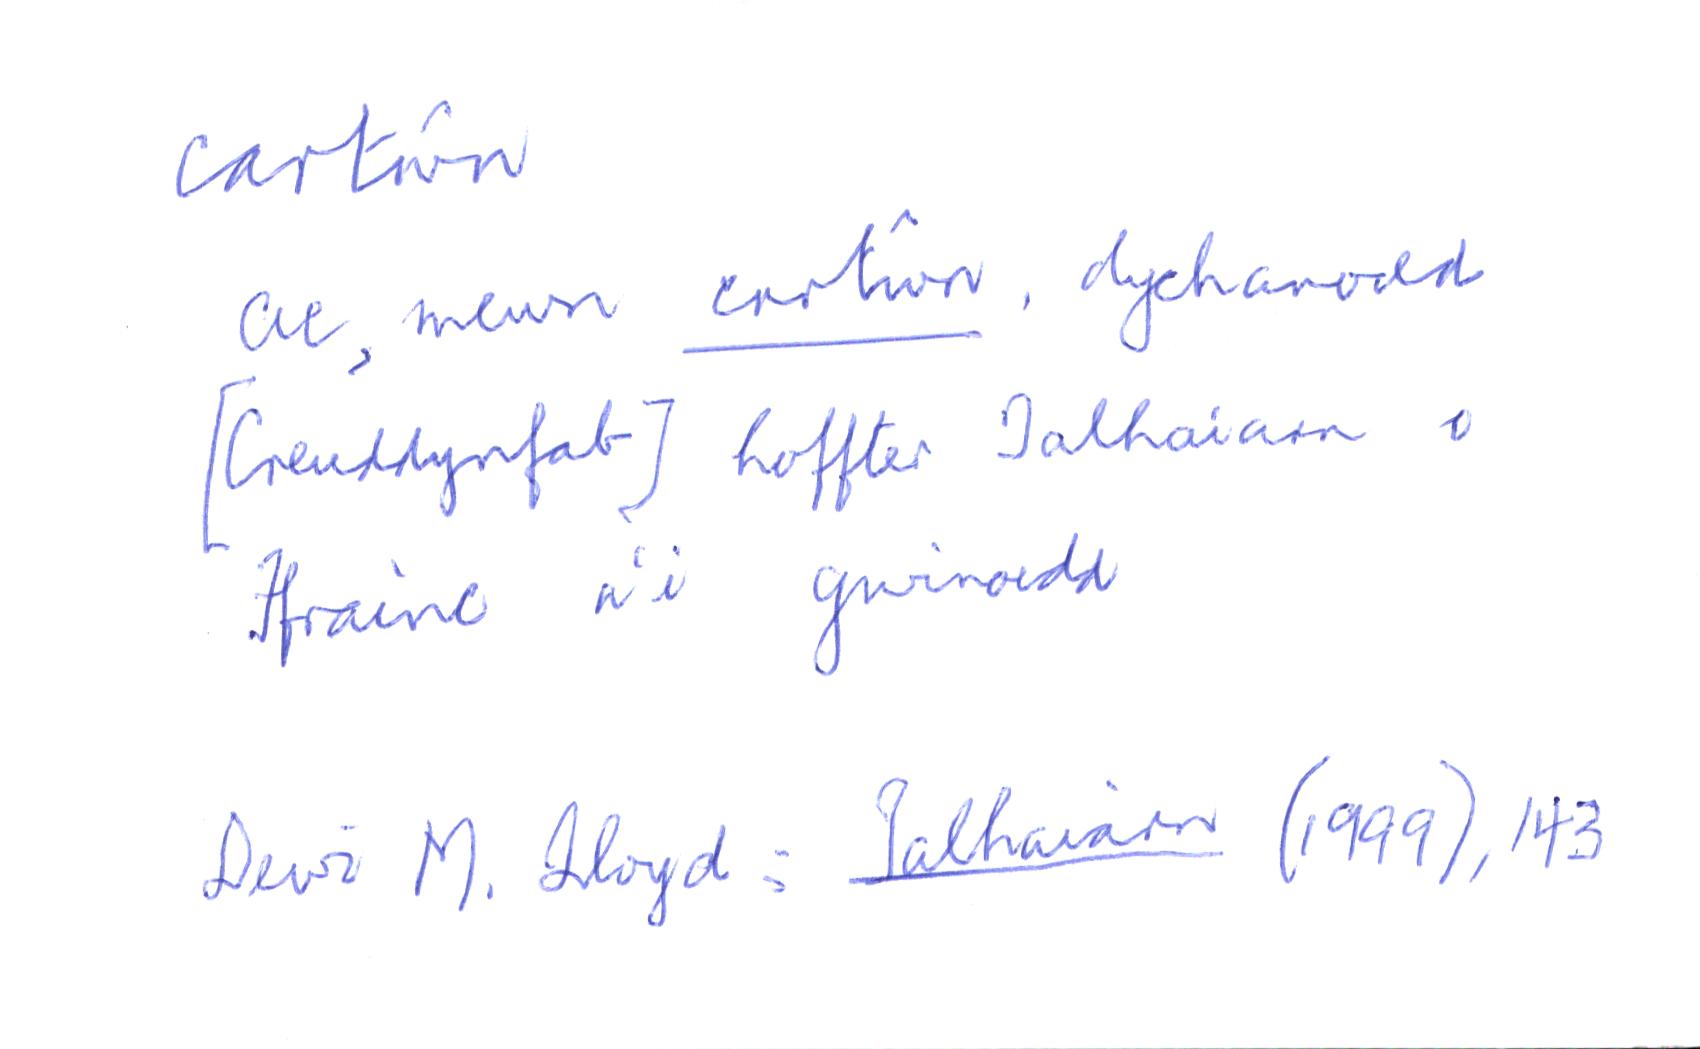 cartŵn
ac, mewn cartŵn, dychanodd
[Creuddynfab] hoffter Talhaiarn o
Ffrainc a'i gwinoedd
Dewi M. Lloyd : Talhaiarn (1999), 143